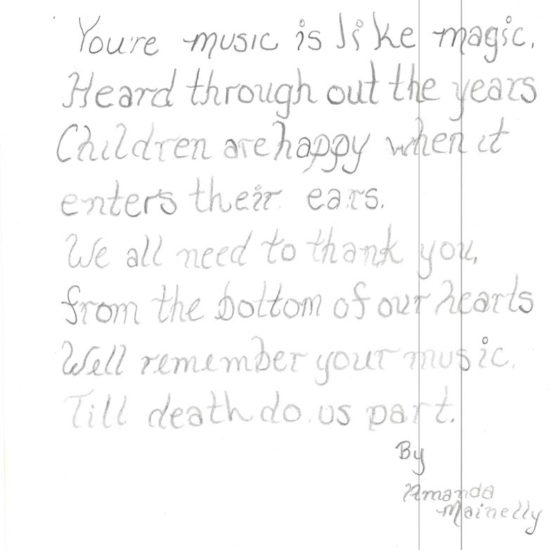 You're music is like magic.
Heard through out the years
Children are happy when it
enters their ears.
We all need to thank you,
from the bottom of our hearts
Well remember your music.
Till death do us part.
By
Amanda
Mainelly